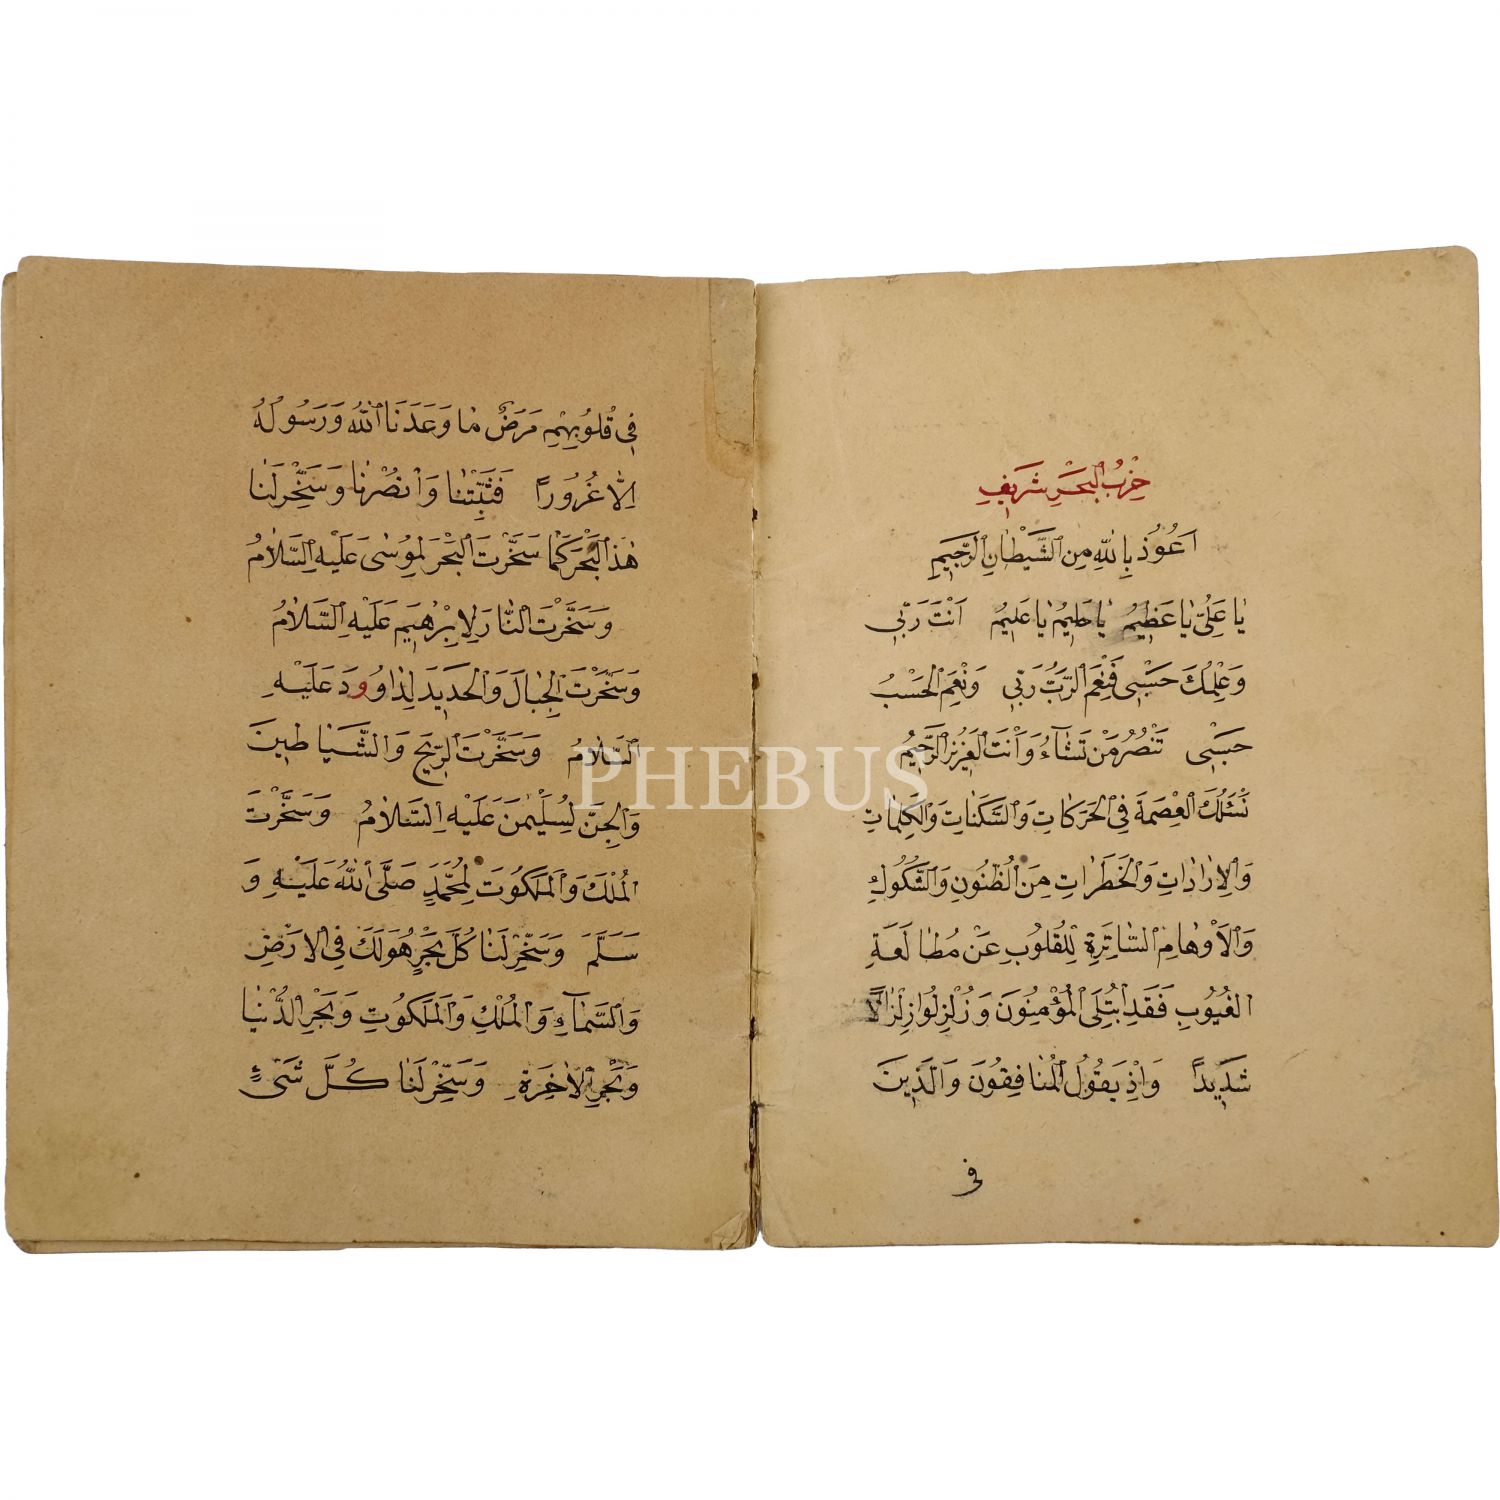 حِزْبُ الْبَحْرِ شَرِيفِ
اَعُوذُ بِاللهِ مِنَ الشَّيْطَانِ الرَّجِيمِ
يَا عَلِىُّ يَا عَظِيمُ يَا حَلِيمُ يَا عَلِيمُ اَنْتَ رَبِّى
وَعِلْمُكَ حَسْبِى فَنِعْمَ الرَّبُّ رَبِّى وَنِعْمَ الْحَسْبُ
حَسْبِى تَنْصُرُ مَنْ تَشَاءُ وَاَنْتَ الْعَزِيزُ الرَّحِيمُ
نَسْئَلُكَ الْعِصْمَةَ فِى الْحَرَكَاتِ وَالسَّكَنَاتِ وَالْكَلِمَاتِ
وَالْاِرَادَاتِ وَالْخَطَرَاتِ مِنَ الظُّنُونِ وَالشُّكُوكِ
وَالْاَوْهَامِ السَّاتِرَةِ لِلْقُلُوبِ عَنْ مُطَالَعَةِ
الْغُيُوبِ فَقَدِ ابْتُلِىَ الْمُؤْمِنُونَ وَزُلْزِلُوا زِلْزَالًا
شَدِيدًا وَاِذْ يَقُولُ الْمُنَافِقُونَ وَالَّذِينَ
فى
فِى قُلُوبِهِمْ مَرَضٌ مَا وَعَدَنَا اللهُ وَرَسُولُهُ
اِلَّا غُرُورًا فَثَبِّتْنَا وَانْصُرْنَا وَسَخِّرْ لَنَا
هٰذَا الْبَحْرَ كَمَا سَخَّرْتَ الْبَحْرَ لِمُوسٰى عَلَيْهِ السَّلَامُ
وَسَخَّرْتَ النَّارَ لِاِبْرٰهِيمَ عَلَيْهِ السَّلَامُ
وَسَخَّرْتَ الْجِبَالَ وَالْحَدِيدَ لِدَاوُودَ عَلَيْهِ
السَّلَامُ وَسَخَّرْتَ الرِّيحَ وَالشَّيَاطِينَ
وَالْجِنَّ لِسُلَيْمٰنَ عَلَيْهِ السَّلَامُ وَسَخَّرْتَ
الْمُلْكَ وَالْمَلَكُوتَ لِمُحَمَّدٍ صَلَّى اللهُ عَلَيْهِ وَ
سَلَّمَ وَسَخِّرْ لَنَا كُلَّ بَحْرٍ هُوَ لَكَ فِى الْاَرْضِ
وَالسَّمَاءِ وَالْمُلْكِ وَالْمَلَكُوتِ وَبَحْرِ الدُّنْيَا
وَبَحْرِ الْاٰخِرَةِ وَسَخِّرْ لَنَا كُلَّ شَىْءٍ
PHEBUS